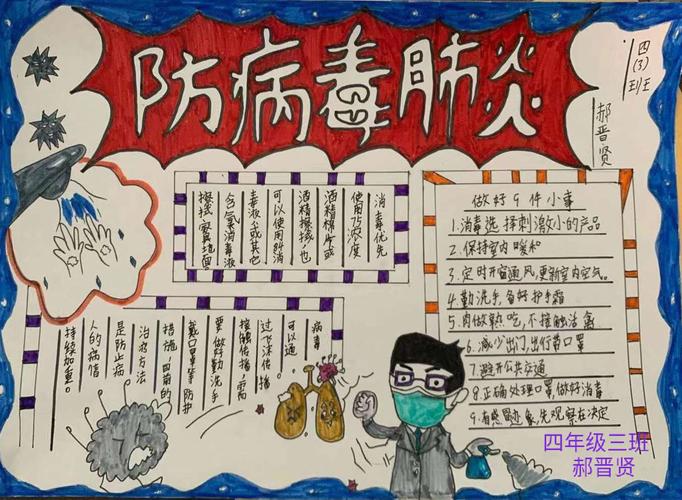 防病毒肺炎
四(3)班
郝晋贤
消毒优先
使用75浓度
酒精棉片或
酒精擦拭,也
可以使用84消
毒液,或其它
含氯消毒液
擦拭
做好9件小事
1.消毒选择刺激小的产品
2.保持室内暖和
3.定时开窗通风,更新室内空气。
4.勤洗手,备好护手霜
5.肉做熟吃,不接触活禽
6.减少出门,出行带口罩
7.避开公共交通
8.正确处理口罩,做好消毒
9.有感冒迹象,先观察在决定
病毒
可以通
过飞沫传播
接触传播,需
要做好勤洗手
戴口罩等防护
措施,目前的
治疗方法
是防止病
人的病情
持续加重。
四年级三班
郝晋贤